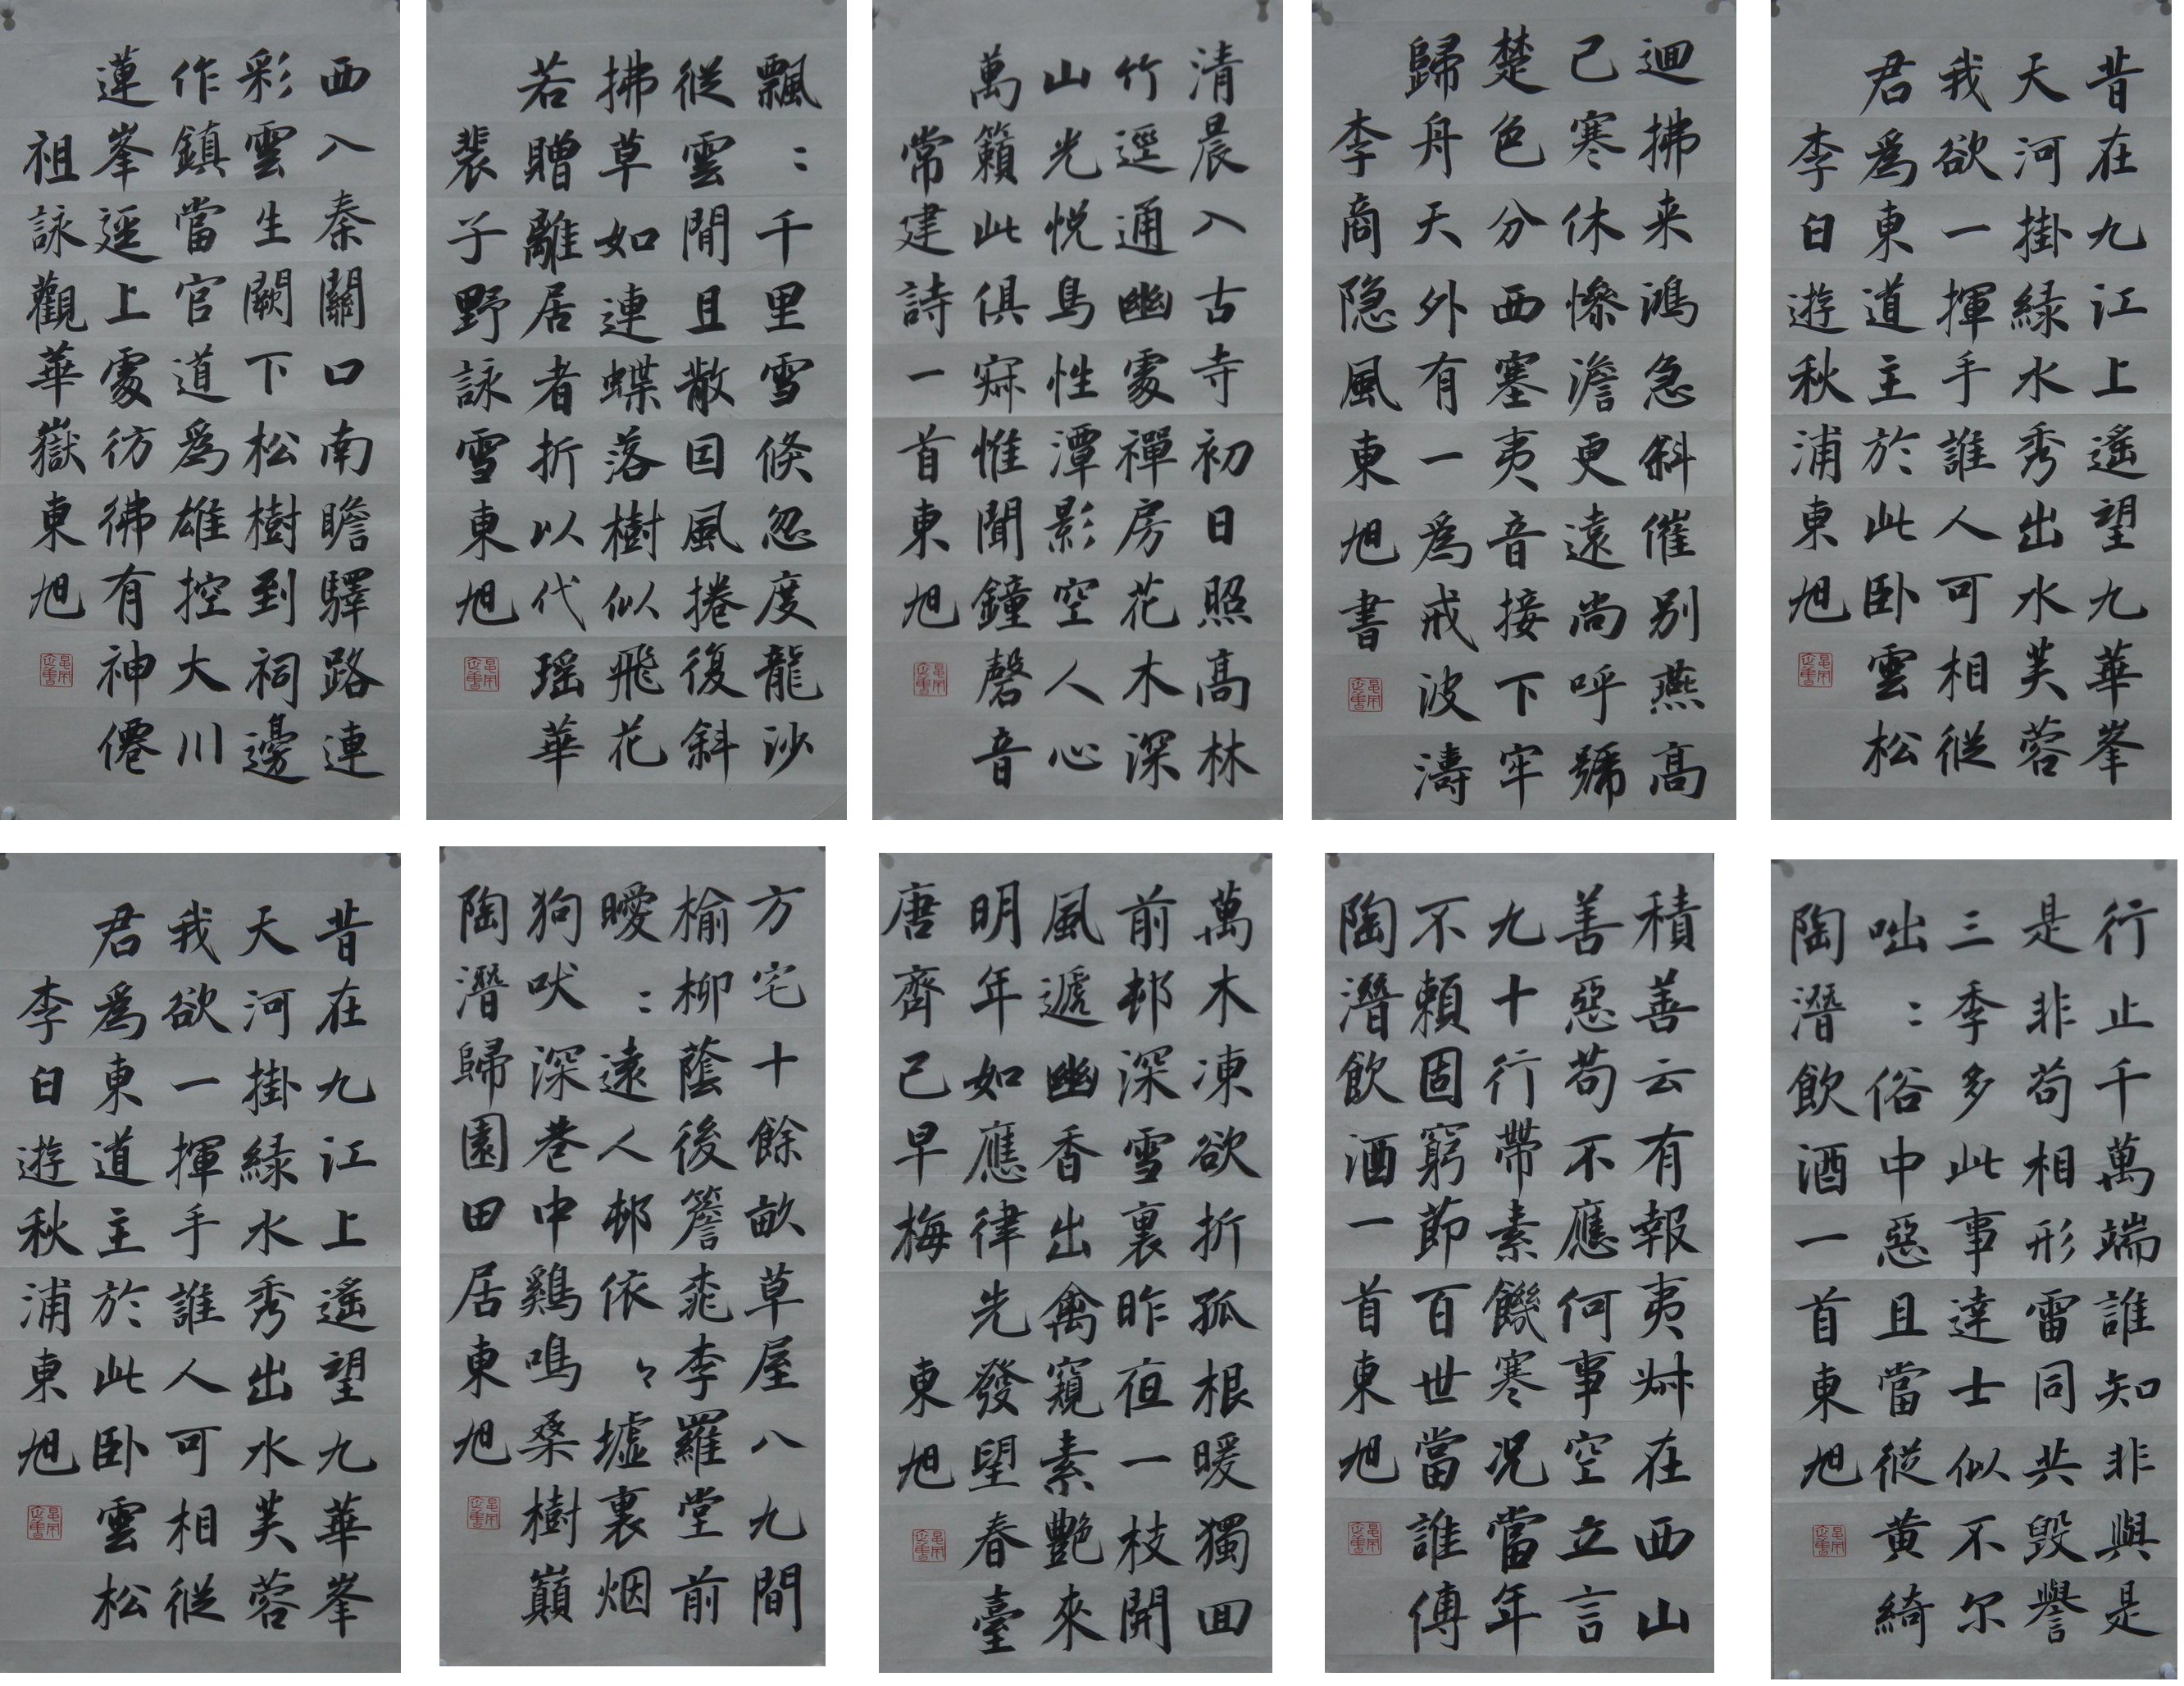 西入秦關口南瞻驛路連
彩雲生闕下松樹到祠邊
作鎮當官道爲雄控大川
蓮峯逕上處彷彿有神僊
祖詠觀華嶽東旭
飄〻千里雪倏忽度龍沙
從雲閒且散因風捲復斜
拂草如連蝶落樹似飛花
若贈離居者折以代瑶華
裴子野詠雪東旭
清晨入古寺初日照高林
竹逕通幽處禪房花木深
山光悦鳥性潭影空人心
萬籟此俱寂惟聞鐘磬音
常建詩一首東旭
迴拂来鴻急斜催别燕高
已寒休慘澹更遠尚呼號
楚色分西塞夷音接下牢
歸舟天外有一爲戒波濤
李商隐風東旭書
昔在九江上遙望九華峯
天河掛緑水秀出水芙蓉
我欲一揮手誰人可相從
君爲東道主於此卧雲松
李白遊秋浦東旭
昔在九江上遙望九華峯
天河掛緑水秀出水芙蓉
我欲一揮手誰人可相從
君爲東道主於此卧雲松
李白遊秋浦東旭
方宅十餘畝草屋八九間
榆柳蔭後簷桃李羅堂前
曖〻遠人邨依〻墟裏烟
狗吠深巷中鷄鳴桑樹巔
陶潛歸園田居東旭
萬木凍欲折孤根暖獨回
前邨深雪裏昨夜一枝開
風遞幽香出禽窺素艷來
明年如應律先發望春臺
唐齊己早梅東旭
積善云有報夷叔在西山
善惡苟不應何事空立言
九十行帶素飢寒况當年
不賴固窮節百世當誰傳
陶潛飲酒一首東旭
行止千萬端誰知非與是
是非苟相形雷同共毀譽
三季多此事達士似不尔
咄〻俗中惡且當從黄綺
陶潛飲酒一首東旭